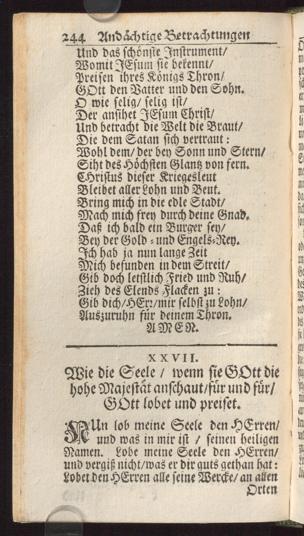 244 Andächtige Betrachtungen
Und das schönste Instrument/
Womit JEsum sie bekennt/
Preisen ihres Königs Thron/
GOtt den Vatter und den Sohn.
O wie selig/ selig ist/
Der ansihet JEsum Christ/
Und betracht die Welt die Braut/
Die dem Satan sich vertraut:
Wohl dem/ der bey Sonn und Stern/
Siht des Höchsten Glantz von fern.
Christus dieser Kriegesleut
Bleibet aller Lohn und Beut.
Bring mich in die edle Stadt/
Mach mich frey durch deine Gnad.
Daß ich bald ein Burger sey/
Bey der Gold- und Engels-Rey.
Ich hab ja nun lange Zeit
Mich befunden in dem Streit/
Gib doch letstlich Fried und Ruh/
Zieh des Elends Flacken zu:
Gib dich/ HErr/ mir selbst zu Lohn/
Auszuruhn für deinem Thron.
AMEN.
XXVII.
Wie die Seele / wenn sie GOtt die
hohe Majestät anschaut/ für und für/
GOtt lobet und preiset.
NUn lob meine Seele den HErren/
und was in mir ist / seinen heiligen
Namen. Lobe meine Seele den HErren/
und vergiß nicht/ was er dir guts gethan hat:
Lobet den HErren alle seine Wercke/ an allen
Orten